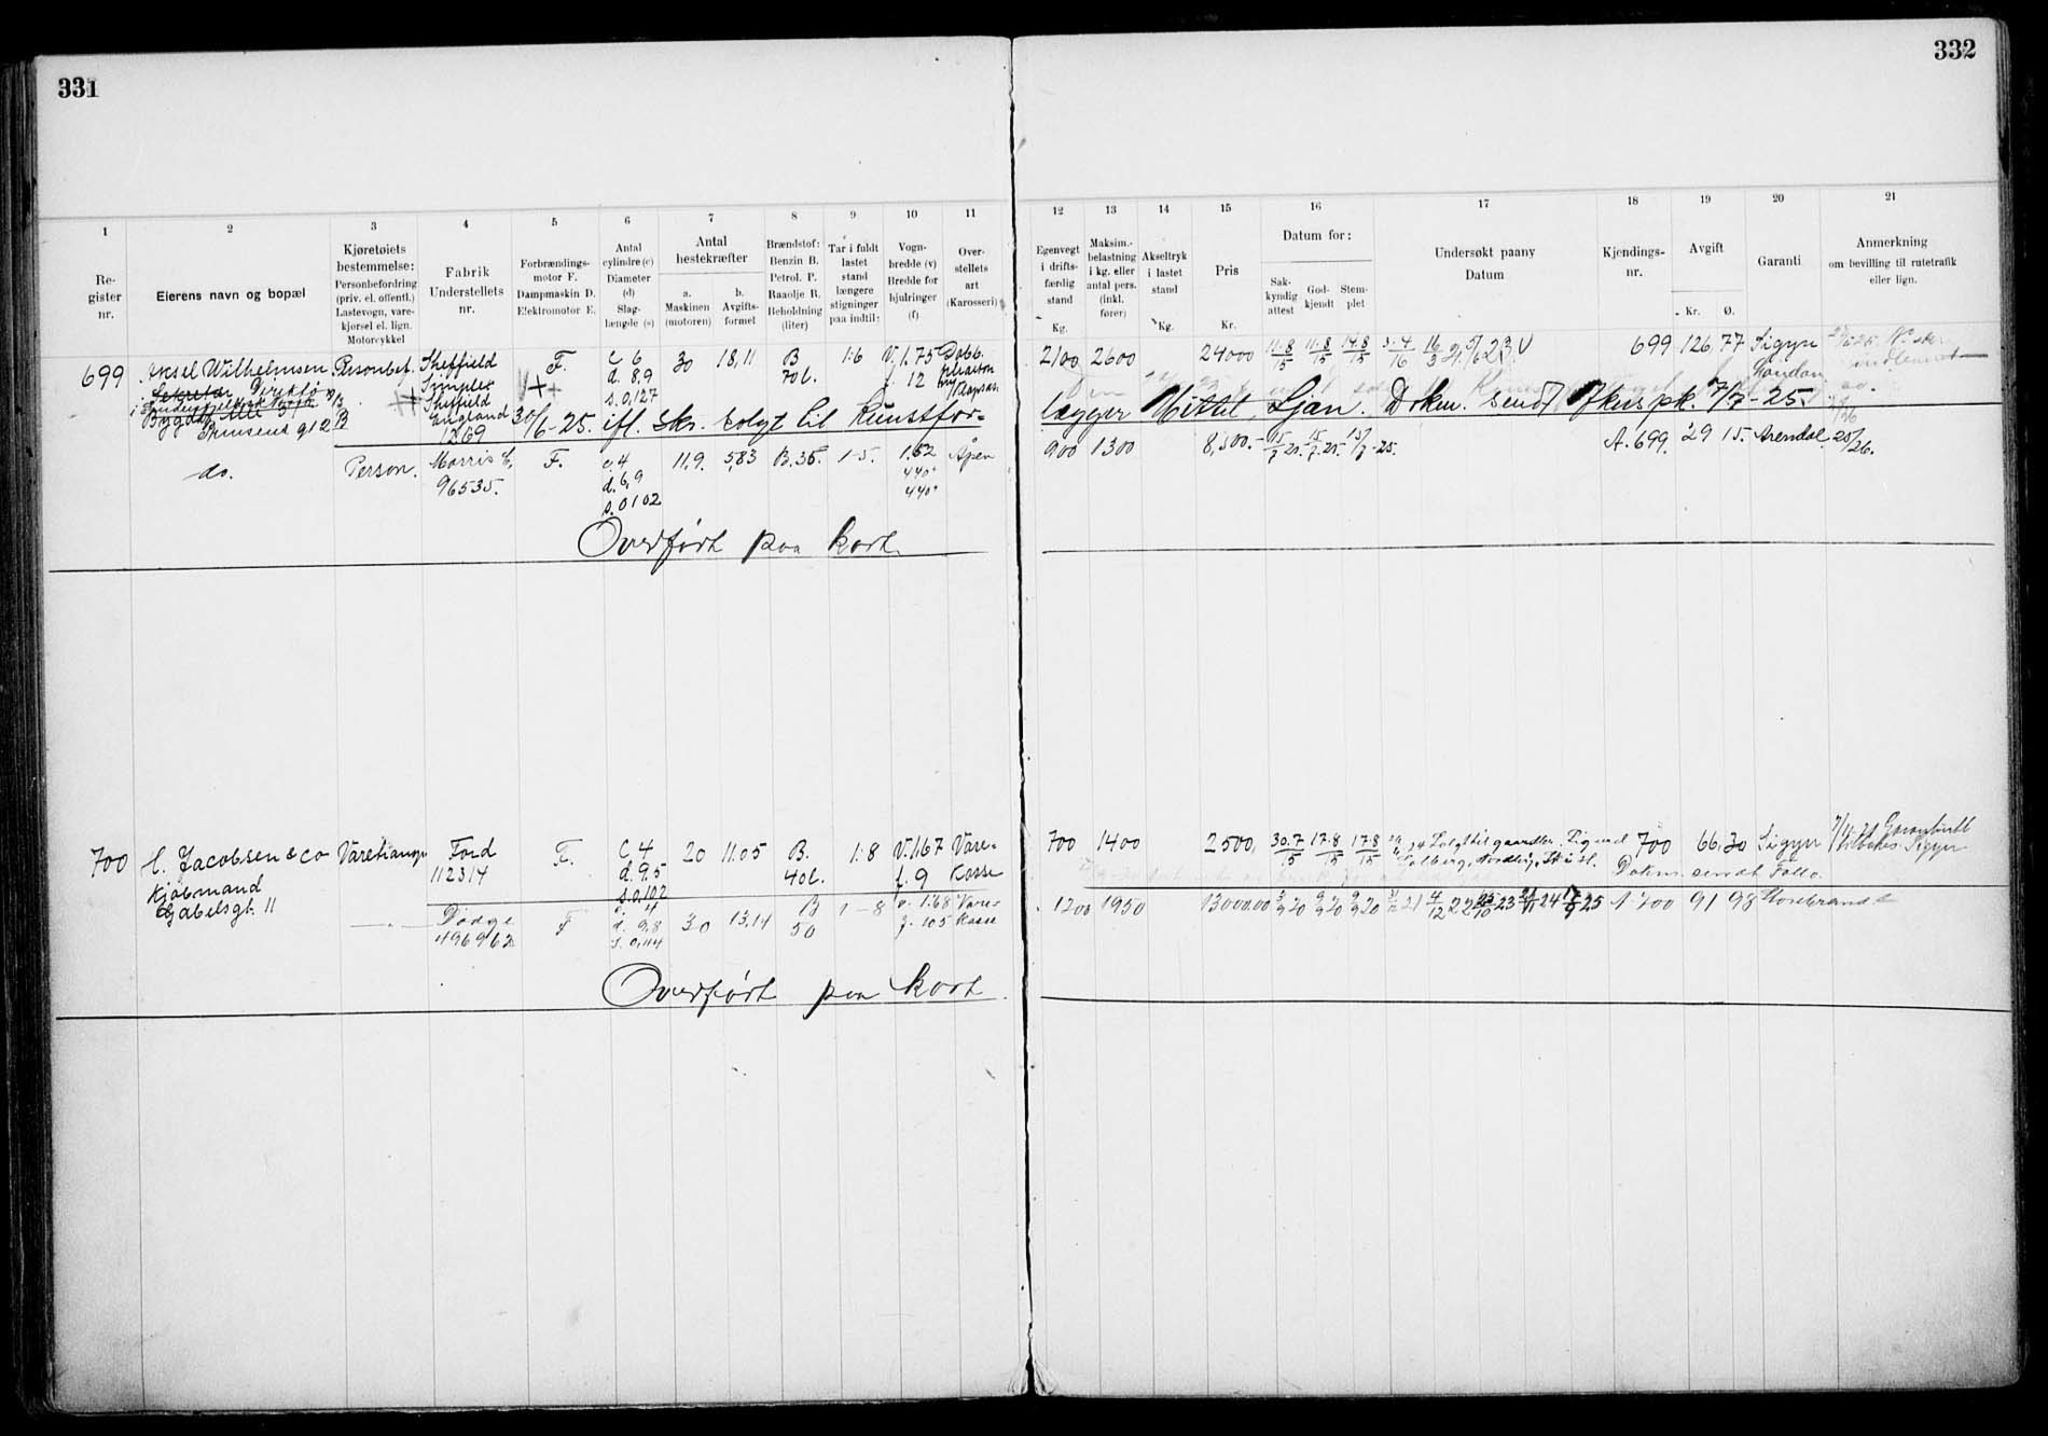 331
332
1 2 3 4 5 6 7 8 9 10 11
12 13 14 15 16 17 18 19 20 21
Re-
gister
nr.
Eierens navn og bopæl
Kjøretøiets
bestemmelse:
Personbefordring
(priv. el. offentl.)
Lastevogn, vare-
kjørsel el. lign.
Motorcykkel
Fabrik
Understellets
nr.
Forbrændings-
motor F.
Dampmaskin D.
Elektromotor E.
Antal
cylindre (c)
Diameter
(d)
Slag-
længde (s)
Antal
hestekræfter
a.
Maskinen
(motoren)
b.
Avgifts-
formel
Brændstof:
Benzin B.
Petrol. P.
Raaolje R.
Beholdning
(liter)
Tar i fuldt
lastet
stand
længere
stigninger
paa indtil:
Vogn-
bredde (v)
Bredde for
hjulringer
(f)
Over-
stellets
art
(Karosseri)
Egenvegt
i drifts-
færdig
stand
Kg.
Maksim.-
belastning
i kg. eller
antal pers.
(inkl.
fører)
Akseltryk
i lastet
stand
Kg.
Pris
Kr.
Datum for:
Sak-
kyndig
attest
God-
kjendt
Stem-
plet
Undersøkt paany
Datum
Kjendings-
nr.
Avgift
Kr. Ø.
Garanti
Anmerkning
om bevilling til rutetrafik
eller lign.
699 Aksel Wilhelmsen Personbef. Sheffield F. C 6 30 18,11 B 1:6 V. 1.75 Dobb.
Sekretær Direktø Simplex d. 8,9 70 l. f. 12 phaeton
Sheffield s. 0,127
Bygdø England
Prinsens g 12 B 1269
2100 2600 24000 11.8/15 11.8/15 14.8/15 699 126,77 Sigyn
30/6-25. ifl. skr. solgt til Kunstfor-
lægger Mittet, Ljan. Dokm. sendt Akers pk. 7/7-25.
do. Person. Morris C, F. c. 4 11,9. 5,83 B. 35. 1-5. 1.52 Åpen
96535. d. 6,9 440
s. 0102 440
900 1300 8,500.- 15/7 25. 15/7 25. 15/7-25. A. 699. 29 15. Arendal. 25/26.
Overført paa kort
700 C. Jacobsen & co Varetransp Ford F. C 4 20 11.05 B. 1:8 V. 1.67 Vare-
Kjøbmand 112314 d. 9.5 40 l. f. 9 Kasse
Gabelsgt. 11 s. 0,102
700 1400 2500, 30.7/15 17.8/15 17.8/15 700 66,30 Sigyn
Dokm. sendt Follo.
—„— Dodge F c. 4 30 13,14 B 1-8 v. 1.68 Vare-
496962 d. 9,8 50 f. 105 Kasse
s. 0,114
1200 1950 13000,00 2/9 20 9/9 20 9/9 20 A-700 91 98 Storebrand
Overført paa kort